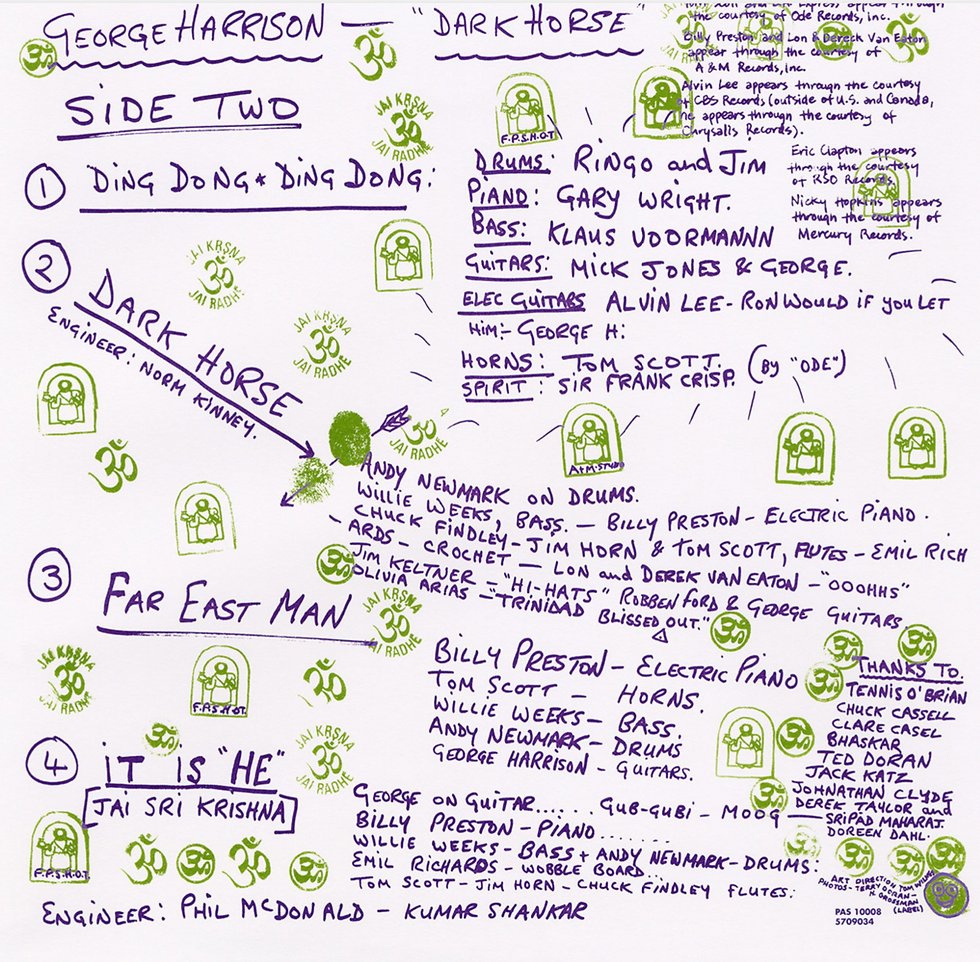 GEORGE HARRISON — "DARK HORSE"
SIDE TWO
the courtesy of Ode Records, inc.
Billy Preston and Lon & Dereck Van Eaton
appear through the courtesy of
A & M Records, Inc.
Alvin Lee appears through the courtesy
of CBS Records (outside of U.S. and Canada,
he appears through the courtesy of
Chrysalis Records).
Eric Clapton appears
through the courtesy
of RSO Records.
Nicky Hopkins appears
through the courtesy of
Mercury Records.
① DiNG DONG * DiNG DONG:
DRUMS: RiNGO and JiM
PiANO: GARY WRiGHT.
BASS: KLAUS VOORMANNN
GUiTARS: MiCK JONES & GEORGE.
ELEC GUiTARS ALViN LEE - RON WOULD iF YOU LET
HiM:- GEORGE H:
HORNS: TOM SCOTT. (BY "ODE")
SPiRiT: SiR FRANK CRiSP.
② DARK HORSE
ENGiNEER: NORM KiNNEY.
ANDY NEWMARK ON DRUMS.
WiLLiE WEEKS, BASS. — BiLLY PRESTON - ELECTRiC PiANO.
CHUCK FiNDLEY - JiM HORN & TOM SCOTT, FLUTES - EMiL RiCH
- ARDS - CROCHET — LON and DEREK VAN EATON - "OOOHHS"
JiM KELTNER - "Hi-HATS" ROBBEN FORD & GEORGE GUiTARS
OLiViA ARiAS - "TRiNiDAD BLiSSED OUT."
③ FAR EAST MAN
BiLLY PRESTON - ELECTRiC PiANO
TOM SCOTT — HORNS.
WiLLiE WEEKS - BASS.
ANDY NEWMARK - DRUMS
GEORGE HARRiSON - GUiTARS.
THANKS TO.
TENNiS O'BRiAN
CHUCK CASSELL
CLARE CASEL
BHASKAR
TED DORAN
JACK KATZ
JOHNATHAN CLYDE
DEREK TAYLOR and
SRiPAD MAHARAJ.
DOREEN DAHL.
④ iT iS "HE"
[JAi SRi KRiSHNA]
GEORGE ON GUiTAR..... GUB-GUBi - MOOG
BiLLY PRESTON - PiANO.......
WiLLiE WEEKS - BASS + ANDY NEWMARK - DRUMS:
EMiL RiCHARDS - WOBBLE BOARD...
TOM SCOTT - JiM HORN - CHUCK FiNDLEY FLUTES:
ENGiNEER: PHiL McDONALD - KUMAR SHANKAR
ART DiRECTiON TOM WiLKES
PHOTOS - TERRY DORAN -
H. GROSSMAN
(LABEL)
PAS 10008
5709034
JAI KRSNA
ॐ
JAI RADHE
F.P.S.H.O.T.
JAI KRSNA
ॐ
JAI RADHE
JAI KRSNA
ॐ
JAI RADHE
ॐ
JAI RADHE
A+M·STUDIO
ॐ
JAI KRSNA
ॐ
JAI RADHE
JAI KRSNA
ॐ
JAI RADHE
F.P.S.H.O.T.
ॐ
JAI KRSNA
ॐ
JAI RADHE
F.P.S.H.O.T.
ॐ
ॐ
ॐ
ॐ